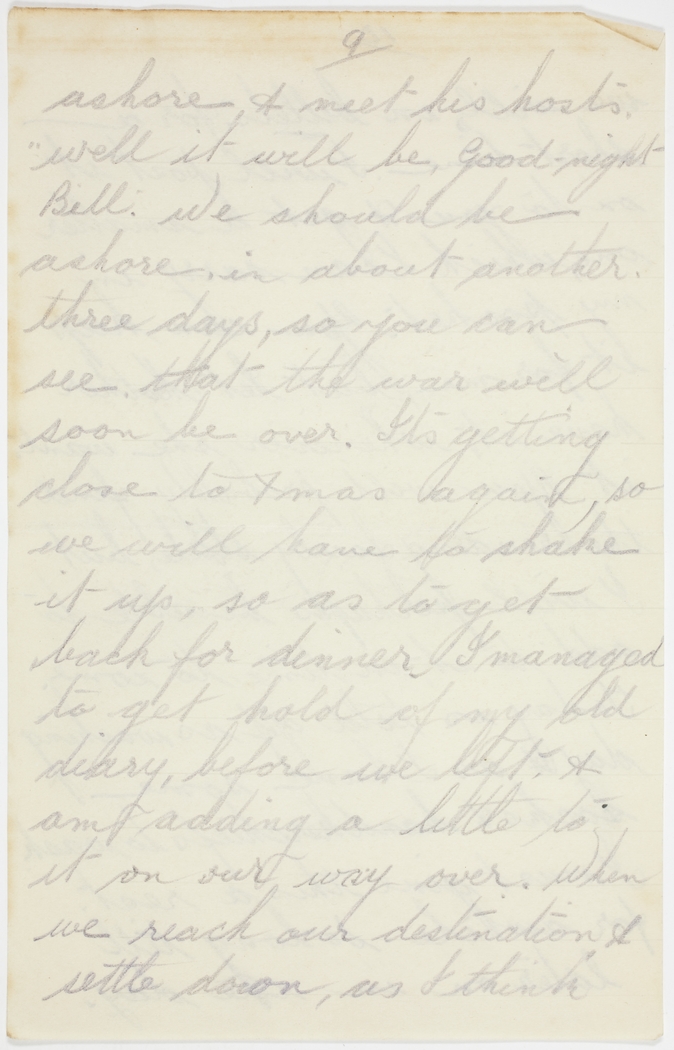 9
ashore, & meet his hosts.
"well it will be, Good-night
Bill. We should be
ashore. in about another.
three days, so you can
see. that the war will
soon be over. Its getting
close to Xmas again, so
we will have to shake
it up, so as to get
back for dinner, I managed
to get hold of my old
diary, before we left. &
am adding a little to
it on our way over. When
we reach our destination, &
settle down, as I think